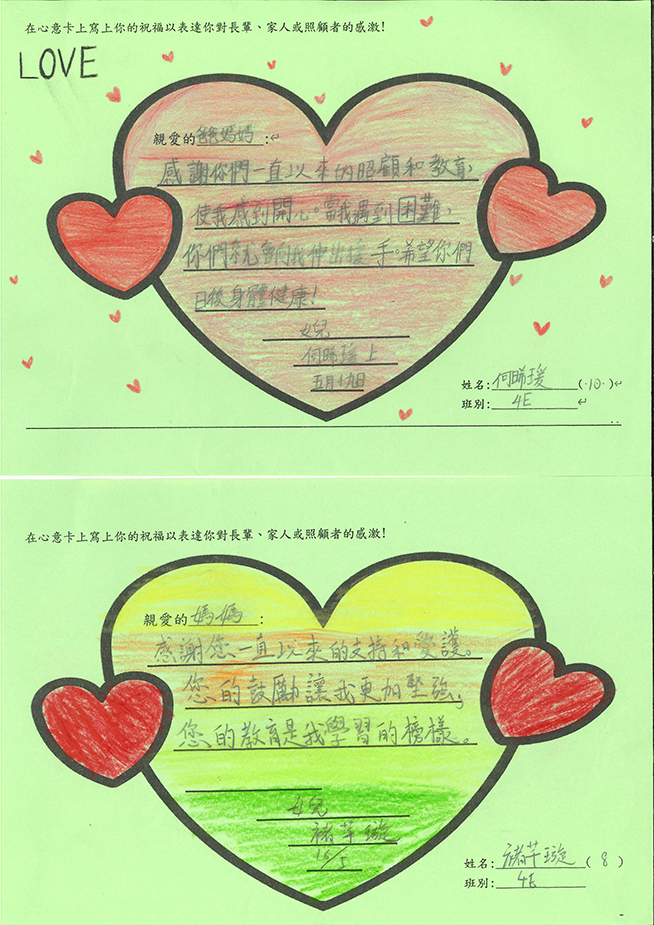 在心意卡上寫上你的祝福以表達你對長輩、家人或照顧者的感激!
LOVE
親愛的爸爸媽媽:
感謝你們一直以來的照顧和教育,
使我感到開心。當我遇到困難,
你們就會向我伸出援手。希望你們
日後身體健康!
女兒
何晞瑗上
五月十九日
姓名:何晞瑗(10)
班別:4E
在心意卡上寫上你的祝福以表達你對長輩、家人或照顧者的感激!
親愛的媽媽:
感謝您一直以來的支持和愛護。
您的鼓勵讓我更加堅強,
您的教育是我學習的榜樣。
女兒
褚芊璇
19/5
姓名:褚芊璇(8)
班別:4E